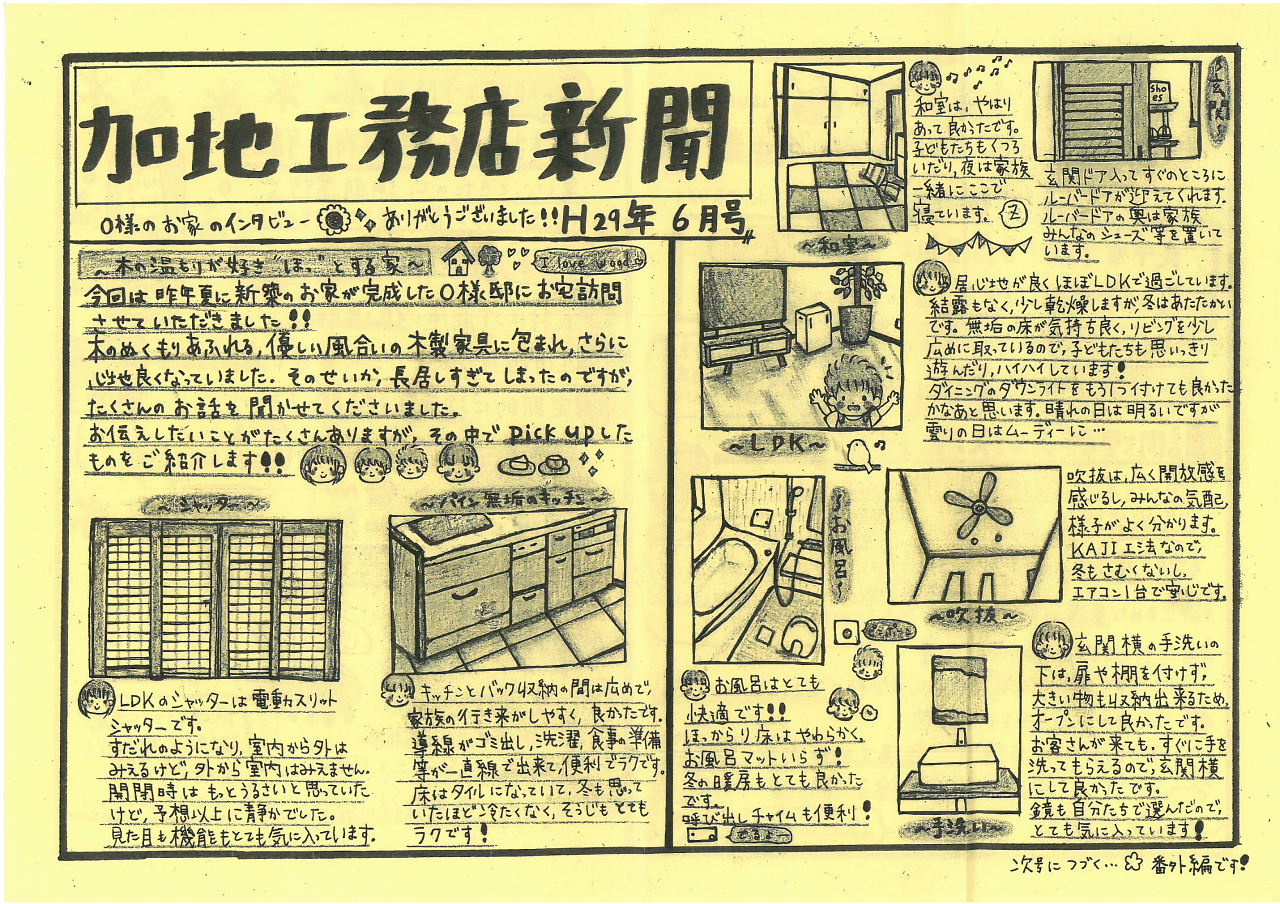 加地工務店新聞
O様のお家のインタビュー ありがとうございました!! H29年 6月号
~木の温もりが好き"ほっ"とする家~
I love wood
今回は昨年夏に新築のお家が完成したO様邸にお宅訪問
させていただきました!!
木のぬくもりあふれる、優しい風合いの木製家具に包まれ、さらに
心地良くなっていました。そのせいか、長居しすぎてしまったのですが、
たくさんのお話を聞かせてくださいました。
お伝えしたいことがたくさんありますが、その中でpick upした
ものをご紹介します!!
~シャッター~
LDKのシャッターは電動スリット
シャッターです。
すだれのようになり、室内から外は
みえるけど、外から室内はみえません。
開閉時はもっとうるさいと思っていた
けど、予想以上に静かでした。
見た目も機能もとても気に入っています。
~パイン無垢のキッチン~
キッチンとバック収納の間は広めで、
家族の行き来がしやすく、良かったです。
導線がゴミ出し、洗濯、食事の準備
等が一直線で出来て、便利でラクです。
床はタイルになっていて、冬も思って
いたほど冷たくなく、そうじもとても
ラクです!
和室は、やはり
あって良かったです。
子どもたちもくつろ
いだり、夜は家族
一緒にここで
寝ています。
Z
~和室~
Sho
es
~玄関~
玄関ドア入ってすぐのところに
ルーバードアが迎えてくれます。
ルーバードアの奥は家族
みんなのシューズ等を置いて
います。
~LDK~
居心地が良くほぼLDKで過ごしています。
結露もなく、少し乾燥しますが、冬はあたたかい
です。無垢の床が気持ち良く、リビングを少し
広めに取っているので、子どもたちも思いっきり
遊んだり、ハイハイしています!
ダイニングのダウンライトをもう1つ付けても良かった
かなあと思います。晴れの日は明るいですが
曇りの日はムーディーに…
~お風呂~
お風呂はとても
快適です!!
ほっからり床はやわらかく、
お風呂マットいらず!
冬の暖房もとても良かった
です。
呼び出しチャイムも便利!
~吹抜~
吹抜は、広く開放感を
感じるし、みんなの気配、
様子がよく分かります。
KAJI工法なので、
冬もさむくないし、
エアコン1台で安心です。
~手洗い~
玄関横の手洗いの
下は、扉や棚を付けず、
大きい物も収納出来るため、
オープンにして良かったです。
お客さんが来ても、すぐに手を
洗ってもらえるので、玄関横
にして良かったです。
鏡も自分たちで選んだので、
とても気に入っています!
次号につづく… 番外編です!